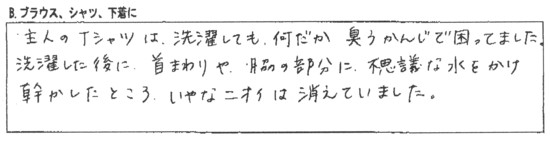 B. ブラウス、シャツ、下着に
主人のTシャツは、洗濯しても、何だか 臭うかんじで困ってました。
洗濯した後に、首まわりや、脇の部分に、不思議な水をかけ
幹かしたところ、いやなニオイは消えていました。